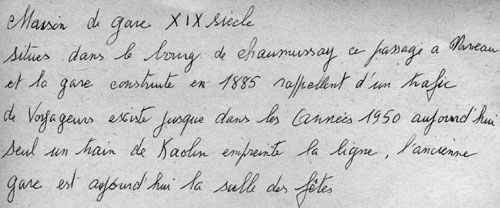 Maison de gare XIX siècle
situes dans le bourg de chaumussay ce passage a Niveau
et la gare construite en 1885 rappellent d'un trafic
de Voyageurs existe jusque dans les (années 1950 aujourd'hui
seul un train de Kaolin empreinte la ligne, l'ancienne
gare est aujourd'hui la salle des fêtes